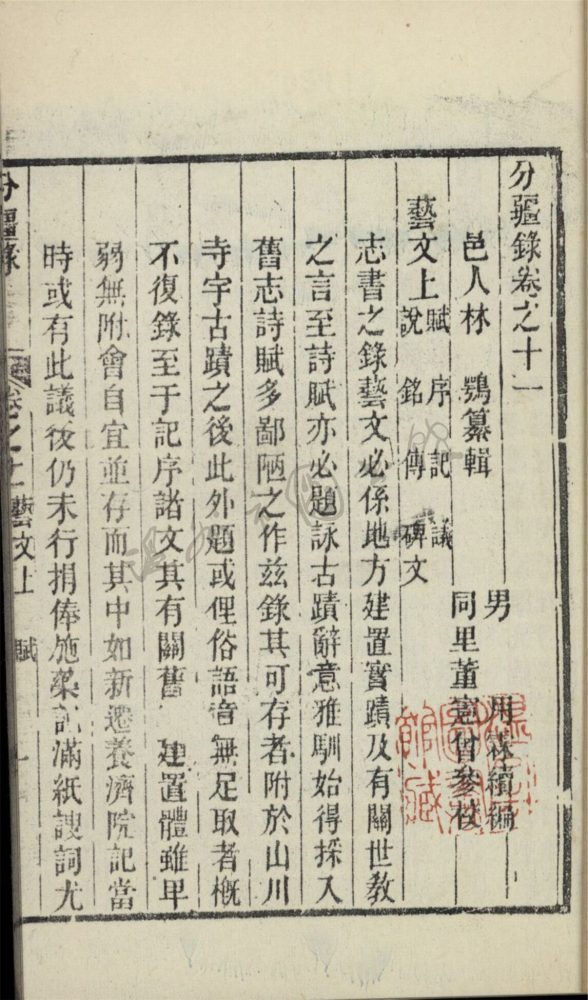 分疆錄卷之十一
邑人林 鶚纂輯 男 用霖續編
同里董 憲曾參校
藝文上 賦 序 記 議
說 銘 傳 碑文
志書之錄藝文必係地方建置實蹟及有關世教
之言至詩賦亦必題詠古蹟辭意雅馴始得採入
舊志詩賦多鄙陋之作茲錄其可存者附於山川
寺宇古蹟之後此外題或俚俗語音無足取者概
不復錄至于記序諸文其有關舊 建置體雖卑
弱無附會自宜並存而其中如新遷養濟院記當
時或有此議後仍未行捐俸施梁記滿紙諛詞尤
分疆錄 卷之十一 藝文上 賦 一